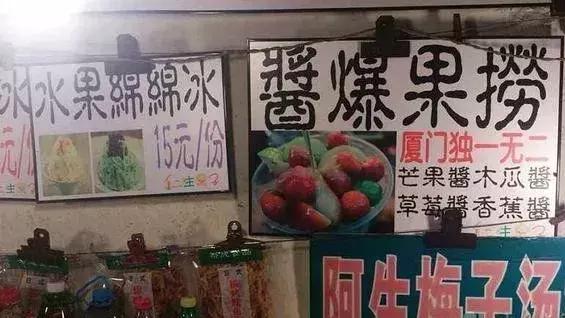 冰
元/份
水果綿綿冰
15元/份
仁生果子
醬爆果撈
厦门独一无二
芒果醬木瓜醬
草莓醬香蕉醬
阿生梅子汤